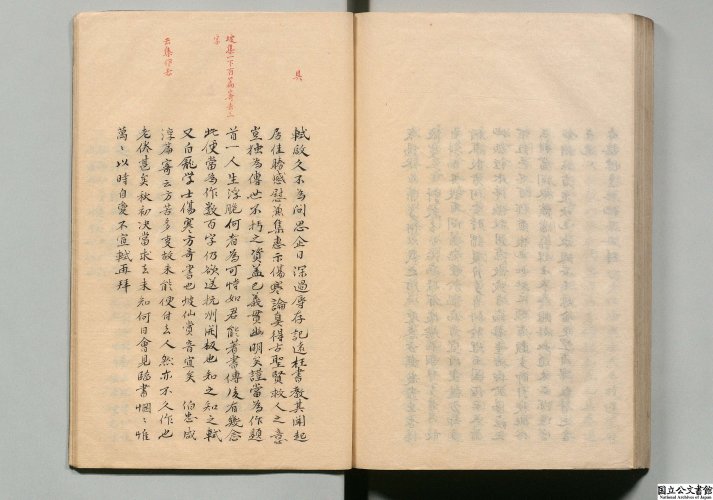 具
坡集一下百篇寄去三
字
去集作告
軾啟久不為問思企日深過辱存記遠枉書教其聞起
居佳勝感慰兼集惠示傷寒論真得古聖賢救人之意
豈獨為傳世不朽之資蓋已義貫幽明矣謹當為作題
首一人生浮脆何者為可恃如君能著書傳後有幾念
此便當為作數百字仍欲送杭州開板也知之知之軾
又白龐學士傷寒方奇書也坡仙賞音宜矣 伯忠咸
淳篇寄云方苦多故未能便付去人然亦不久作也
老倦甚矣秋初決當求去未知何日會見臨書惘〻惟
萬〻以時自愛不宣軾再拜
国立公文書館
National Archives of Japan